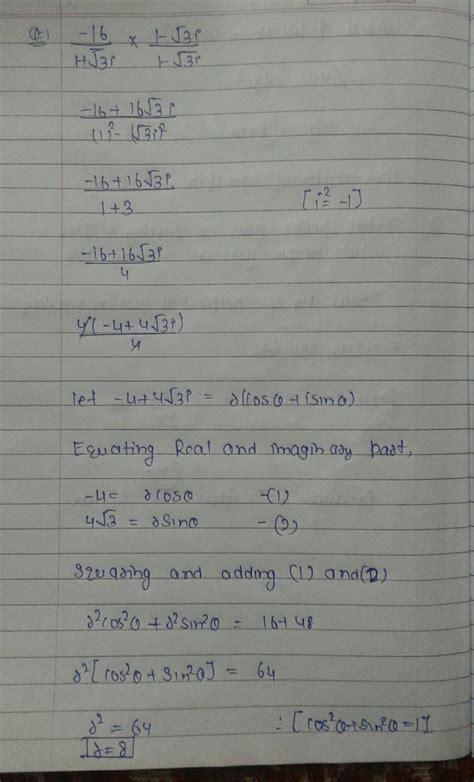 Q:1 -16/1+√3i × 1-√3i/1-√3i
-16+16√3i/(1)²-(√3i)²
-16+16√3i/1+3 [i²=-1]
-16+16√3i/4
4(-4+4√3i)/4
let -4+4√3i = r(cosθ+isinθ)
Equating Real and imaginary part,
-4= rcosθ -(1)
4√3 = rsinθ -(2)
Squaring and adding (1) and(2)
r²cos²θ + r²sin²θ = 16+48
r²[cos²θ + sin²θ] = 64
r² = 64 ∴[cos²θ+sin²θ=1]
r=8